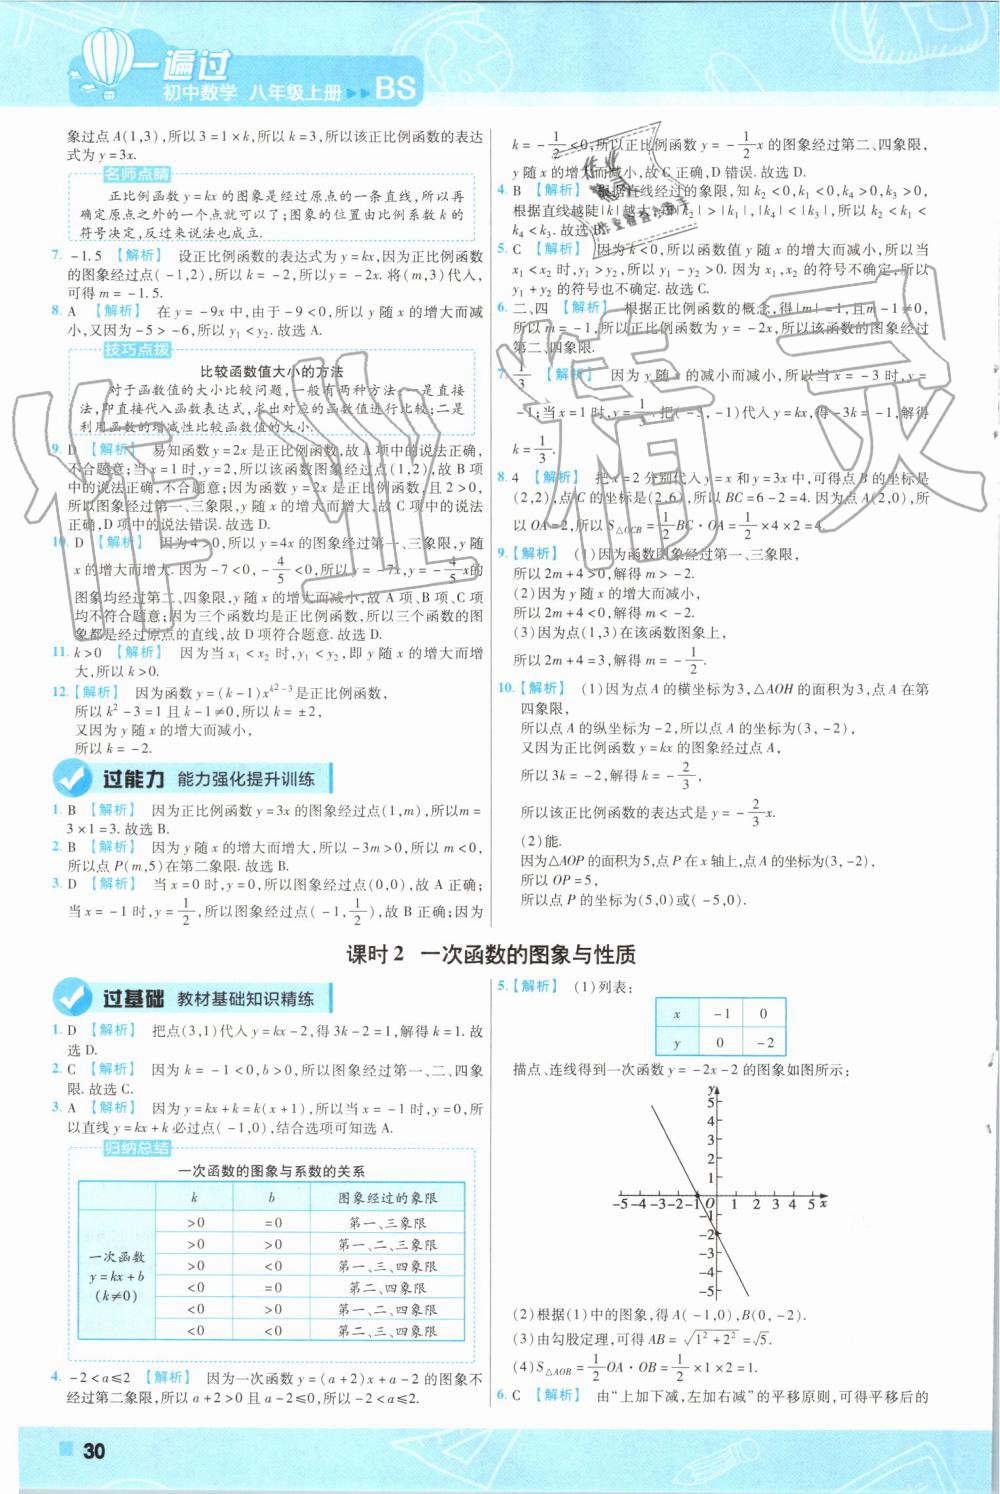 一遍过
初中数学 八年级上册 ▶▶ BS
象过点A(1,3),所以3=1×k,所以k=3,所以该正比例函数的表达
式为y=3x.
名师点睛
正比例函数y=kx的图象是经过原点的一条直线,所以再
确定原点之外的一个点就可以了;图象的位置由比例系数k的
符号决定,反过来说法也成立.
7. -1.5 【解析】 设正比例函数的表达式为y=kx,因为正比例函数
的图象经过点(-1,2),所以k=-2,所以y=-2x.将(m,3)代入,
可得m=-1.5.
8. A 【解析】 在y=-9x中,由于-9<0,所以y随x的增大而减
小,又因为-5>-6,所以y₁<y₂.故选A.
技巧点拨
比较函数值大小的方法
对于函数值的大小比较问题,一般有两种方法:一是直接
法,即直接代入函数表达式,求出对应的函数值进行比较;二是
利用函数的增减性比较函数值的大小.
9. D 【解析】 易知函数y=2x是正比例函数,故A项中的说法正确,
不合题意;当x=1时,y=2,所以该函数图象经过点(1,2),故B项
中的说法正确,不合题意;因为函数y=2x是正比例函数,且2>0,
所以图象经过第一、三象限,y随x的增大而增大,故C项中的说法
正确,D项中的说法错误.故选D.
10. D 【解析】 因为4>0,所以y=4x的图象经过第一、三象限,y随
x的增大而增大.因为-7<0,-4/5<0,所以y=-7x,y=-4/5x的
图象均经过第二、四象限,y随x的增大而减小,故A项、B项、C项
均不符合题意;因为三个函数均是正比例函数,所以三个函数的图
象都是经过原点的直线,故D项符合题意.故选D.
11. k>0 【解析】 因为当x₁<x₂时,y₁<y₂,即y随x的增大而增
大,所以k>0.
12.【解析】 因为函数y=(k-1)x^(k²-3)是正比例函数,
所以k²-3=1且k-1≠0,所以k=±2,
又因为y随x的增大而减小,
所以k=-2.
过能力 能力强化提升训练
1. B 【解析】 因为正比例函数y=3x的图象经过点(1,m),所以m=
3×1=3.故选B.
2. B 【解析】 因为y随x的增大而增大,所以-3m>0,所以m<0,
所以点P(m,5)在第二象限.故选B.
3. D 【解析】 当x=0时,y=0,所以图象经过点(0,0),故A正确;
当x=-1时,y=1/2,所以图象经过点(-1,1/2),故B正确;因为
k=-1/2<0,所以正比例函数y=-1/2x的图象经过第二、四象限,
y随x的增大而减小,故C正确,D错误.故选D.
4. B 【解析】 根据直线经过的象限,知k₂<0,k₁<0,k₄>0,k₃>0,
根据直线越陡|k|越大,知|k₂|>|k₁|,|k₄|<|k₃|,所以k₂<k₁<
k₄<k₃.故选B.
5. C 【解析】 因为k<0,所以函数值y随x的增大而减小,所以当
x₁<x₂时,y₁>y₂,所以y₁-y₂>0.因为x₁,x₂的符号不确定,所以
y₁+y₂的符号也不确定,故选C.
6. 二、四 【解析】 根据正比例函数的概念,得|m|=1,且m-1≠0,
所以m=-1,所以函数的表达式为y=-2x,所以该函数的图象经过
第二、四象限.
7. 1/3 【解析】 因为y随x的减小而减小,所以当x=-3时,y=
-1;当x=1时,y=1/3.把(-3,-1)代入y=kx,得-3k=-1,解得
k=1/3.
8. 4 【解析】 把x=2分别代入y=x和y=3x中,可得点B的坐标是
(2,2),点C的坐标是(2,6),所以BC=6-2=4.因为点A(2,0),所
以OA=2,所以S△OCB=1/2BC·OA=1/2×4×2=4.
9.【解析】 (1)因为函数图象经过第一、三象限,
所以2m+4>0,解得m>-2.
(2)因为y随x的增大而减小,
所以2m+4<0,解得m<-2.
(3)因为点(1,3)在该函数图象上,
所以2m+4=3,解得m=-1/2.
10.【解析】 (1)因为点A的横坐标为3,△AOH的面积为3,点A在第
四象限,
所以点A的纵坐标为-2,所以点A的坐标为(3,-2),
又因为正比例函数y=kx的图象经过点A,
所以3k=-2,解得k=-2/3,
所以该正比例函数的表达式是y=-2/3x.
(2)能.
因为△AOP的面积为5,点P在x轴上,点A的坐标为(3,-2),
所以OP=5,
所以点P的坐标为(5,0)或(-5,0).
课时2 一次函数的图象与性质
过基础 教材基础知识精练
1. D 【解析】 把点(3,1)代入y=kx-2,得3k-2=1,解得k=1.故
选D.
2. C 【解析】 因为k=-1<0,b>0,所以图象经过第一、二、四象
限.故选C.
3. A 【解析】 因为y=kx+k=k(x+1),所以当x=-1时,y=0,所
以直线y=kx+k必过点(-1,0),结合选项可知选A.
归纳总结
一次函数的图象与系数的关系
k b 图象经过的象限
一次函数
y=kx+b
(k≠0)
>0 =0 第一、三象限
>0 >0 第一、二、三象限
>0 <0 第一、三、四象限
<0 =0 第二、四象限
<0 >0 第一、二、四象限
<0 <0 第二、三、四象限
4. -2<a≤2 【解析】 因为一次函数y=(a+2)x+a-2的图象不
经过第二象限,所以a+2>0且a-2≤0,所以-2<a≤2.
5.【解析】 (1)列表:
x -1 0
y 0 -2
描点、连线得到一次函数y=-2x-2的图象如图所示:
y
5
4
3
2
1
-5 -4 -3 -2 -1 O 1 2 3 4 5 x
-1
-2
-3
-4
-5
(2)根据(1)中的图象,得A(-1,0),B(0,-2).
(3)由勾股定理,可得AB=√(1²+2²)=√5.
(4)S△AOB=1/2OA·OB=1/2×1×2=1.
6. C 【解析】 由“上加下减,左加右减”的平移原则,可得平移后的
30
作业精灵